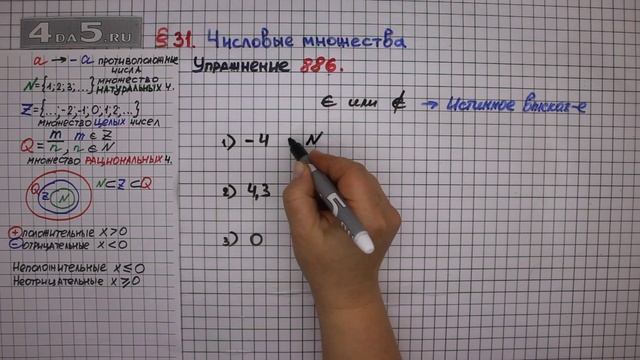 4DA5.RU
§ 31. Числовые множества
Упражнение 886.
a → -a противоположные числа
N={1; 2; 3; ...} множество НАТУРАЛЬНЫХ ч.
Z={...; -2; -1; 0; 1; 2; ...}
множество ЦЕЛЫХ чисел
Q = m/n, m ∈ Z, n ∈ N
множество РАЦИОНАЛЬНЫХ ч.
Q Z N N ⊂ Z ⊂ Q
+ положительные x > 0
- отрицательные x < 0
Неположительные x ≤ 0
Неотрицательные x ≥ 0
∈ или ∉ → Истинное выказ-е
1) -4 N
2) 4,3
3) 0